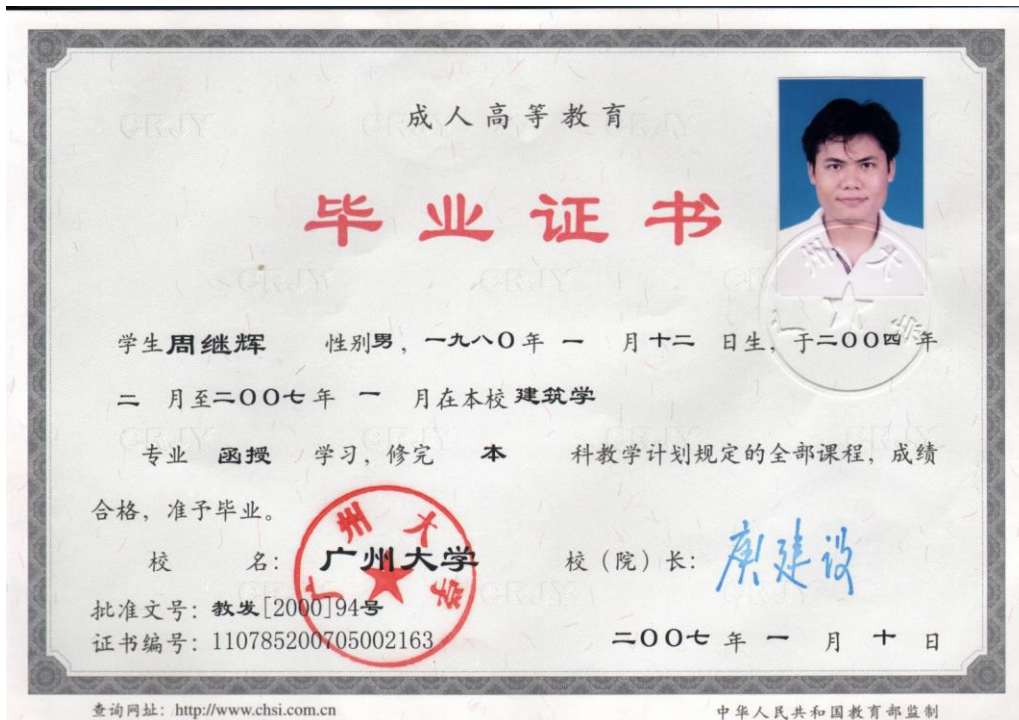 成人高等教育
毕业证书
学生周继辉 性别男，一九八〇年 一 月十二 日生，于二〇〇四年
二 月至二〇〇七年 一 月在本校 建筑学
专业 函授 学习，修完 本 科教学计划规定的全部课程，成绩
合格，准予毕业。
校 名：广州大学 校（院）长：庾建设
批准文号：教发[2000]94号
证书编号：110785200705002163 二〇〇七 年 一 月 十 日
查询网址：http://www.chsi.com.cn 中华人民共和国教育部监制
广州大学
广州大学
CRJY